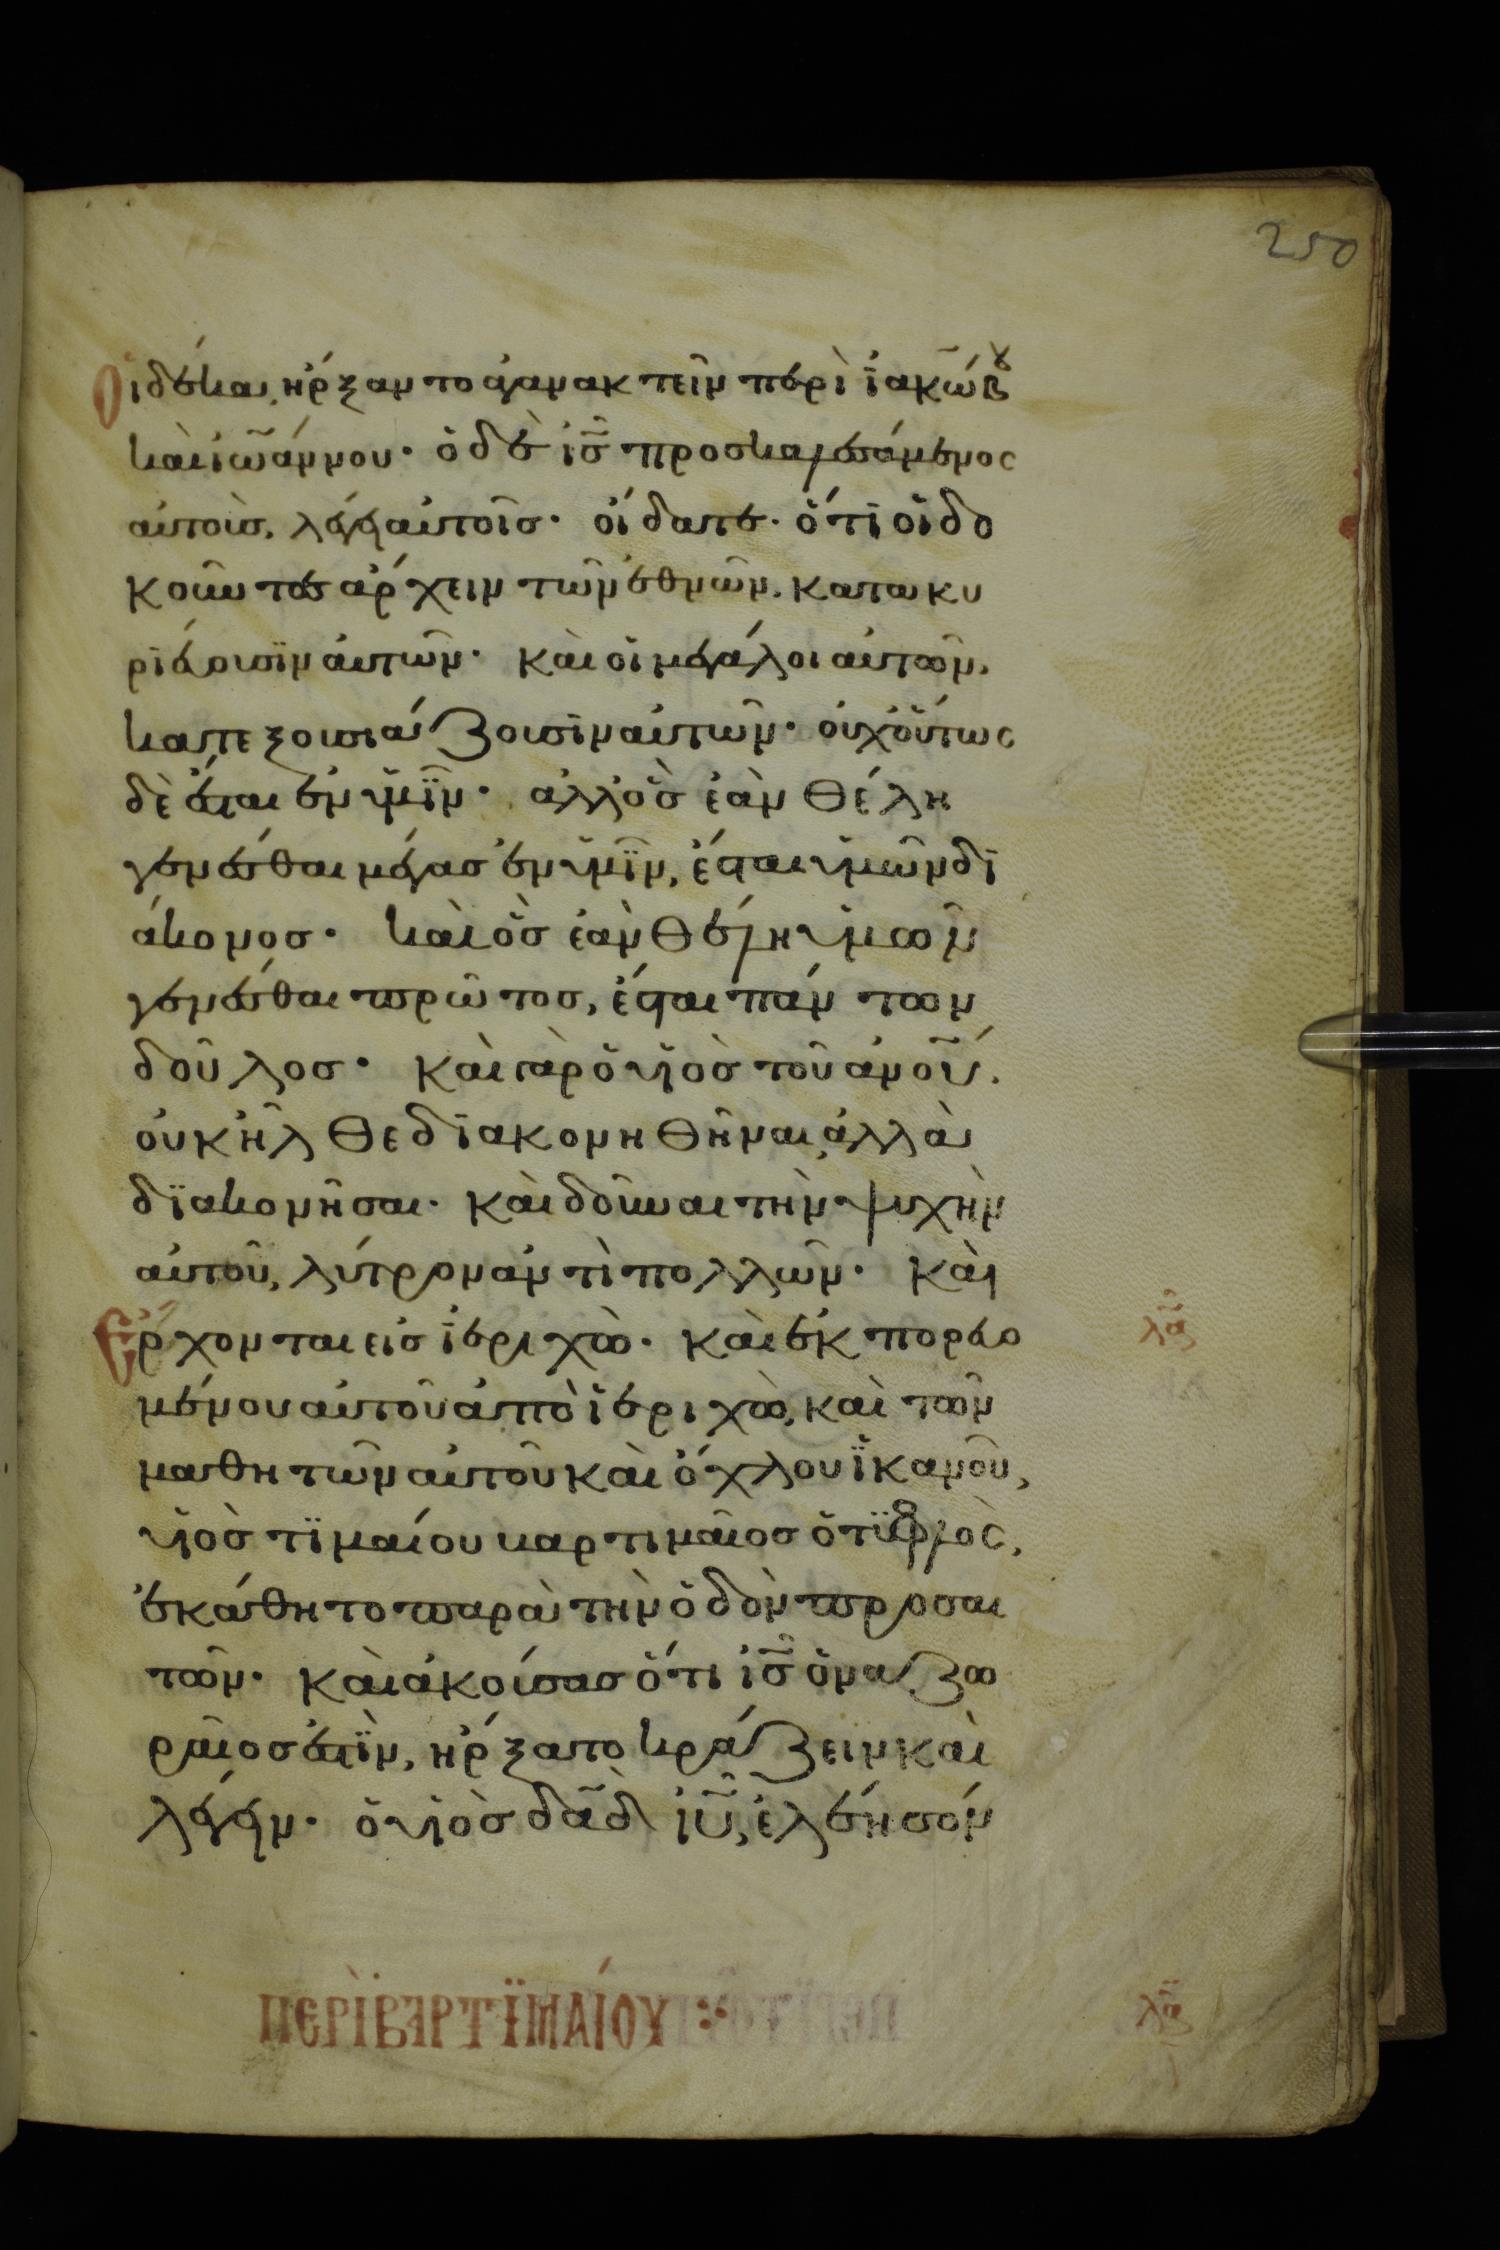 250
Οἱ δέκα, ἤρξαντο ἀγανακτεῖν περὶ ἰακώβου
καὶ ἰωάννου· ὁ δὲ ις προσκαλεσάμενος
αὐτοὺσ, λέγει αὐτοῖσ· οἴδατε· ὅτι οἱ δο
κοῦντεσ ἄρχειν τῶν ἐθνῶν, κατακυ
ριέυουσϊν αὐτῶν· καὶ οἱ μεγάλοι αὐτῶν,
κατεξουσιάζουσιν αὐτῶν· οὐχ οὕτως
δὲ ἔσται ἐν ὑμῖν· ἀλλ ὃσ ἐὰν θέλη
γενέσθαι μέγασ ἐν ὑμῖν, ἔσται ὑμῶν δι
άκονοσ· καὶ ὃσ ἐὰν θέλη ὑμῶν
γενέσθαι πρῶτοσ, ἔσται πάντων
δοῦλοσ· καὶ γὰρ ὁ υἱὸσ τοῦ ανου,
οὐκ ἦλθε διακονηθῆναι, ἀλλὰ
διακονῆσαι· καὶ δοῦναι τὴν ψυχὴν
αὐτοῦ, λύτρον ἀντὶ πολλῶν· καὶ
Ερχονται εἰσ ἰεριχὼ· καὶ ἐκπορευο
μένου αὐτοῦ ἀπὸ ἰεριχὼ, καὶ τῶν
μαθητῶν αὐτοῦ καὶ ὄχλου ἱκανοῦ,
υἱὸσ τιμαίου βαρτιμαῖοσ ὁ τυφλὸς,
ἐκάθητο παρὰ τὴν ὁδὸν προσαι
τῶν· καὶ ἀκούσασ ὅτι ις ὁ ναζω
ραῖοσ ἐστϊν, ἤρξατο κράζειν καὶ
λέγειν· ὁ υἱὸσ δαδ ιυ, ἐλέησόν
ΠΕΡῚ ΒΑΡΤΪΜΑΊΟΥ